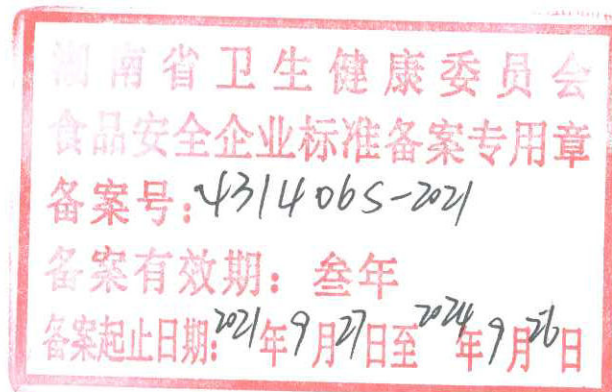 湖南省卫生健康委员会
食品安全企业标准备案专用章
备案号：4314065-2021
备案有效期：叁年
备案起止日期：2021年9月27日至2024年9月26日